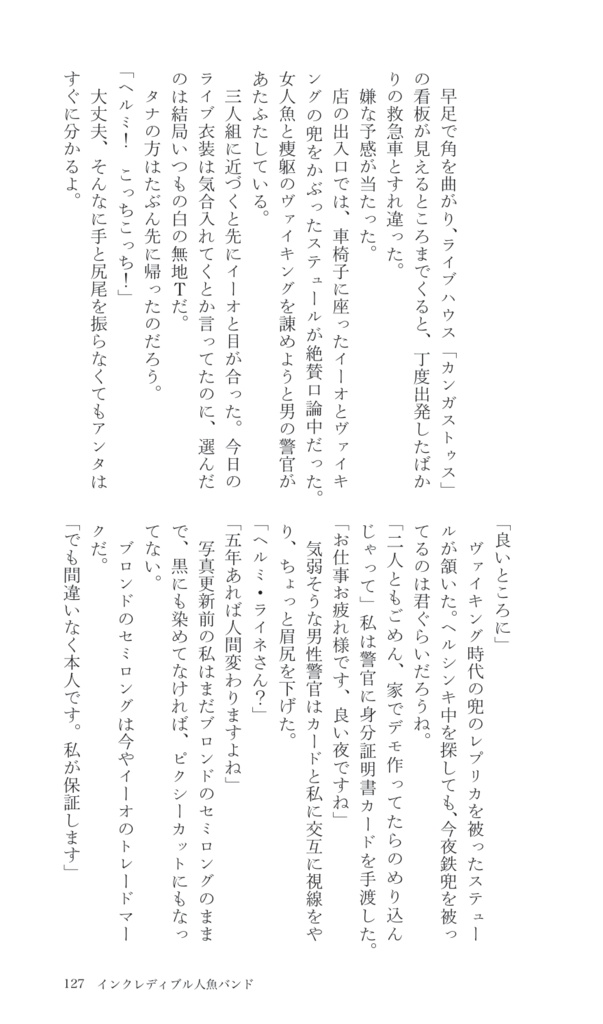 早足で角を曲がり、ライブハウス「カンガストゥス」
の看板が見えるところまでくると、丁度出発したばか
りの救急車とすれ違った。
　嫌な予感が当たった。
　店の出入口では、車椅子に座ったイーオとヴァイキ
ングの兜をかぶったステュールが絶賛口論中だった。
女人魚と痩躯のヴァイキングを諌めようと男の警官が
あたふたしている。
　三人組に近づくと先にイーオと目が合った。今日の
ライブ衣装は気合入れてくとか言ってたのに、選んだ
のは結局いつもの白の無地Ｔだ。
　タナの方はたぶん先に帰ったのだろう。
「ヘルミ！　こっちこっち！」
　大丈夫、そんなに手と尻尾を振らなくてもアンタは
すぐに分かるよ。
「良いところに」
　ヴァイキング時代の兜のレプリカを被ったステュー
ルが頷いた。ヘルシンキ中を探しても、今夜鉄兜を被っ
てるのは君ぐらいだろうね。
「二人ともごめん、家でデモ作ってたらのめり込ん
じゃって」私は警官に身分証明書カードを手渡した。
「お仕事お疲れ様です、良い夜ですね」
　気弱そうな男性警官はカードと私に交互に視線をや
り、ちょっと眉尻を下げた。
「ヘルミ・ライネさん？」
「五年あれば人間変わりますよね」
　写真更新前の私はまだブロンドのセミロングのまま
で、黒にも染めてなければ、ピクシーカットにもなっ
てない。
　ブロンドのセミロングは今やイーオのトレードマー
クだ。
「でも間違いなく本人です。私が保証します」
127　インクレディブル人魚バンド